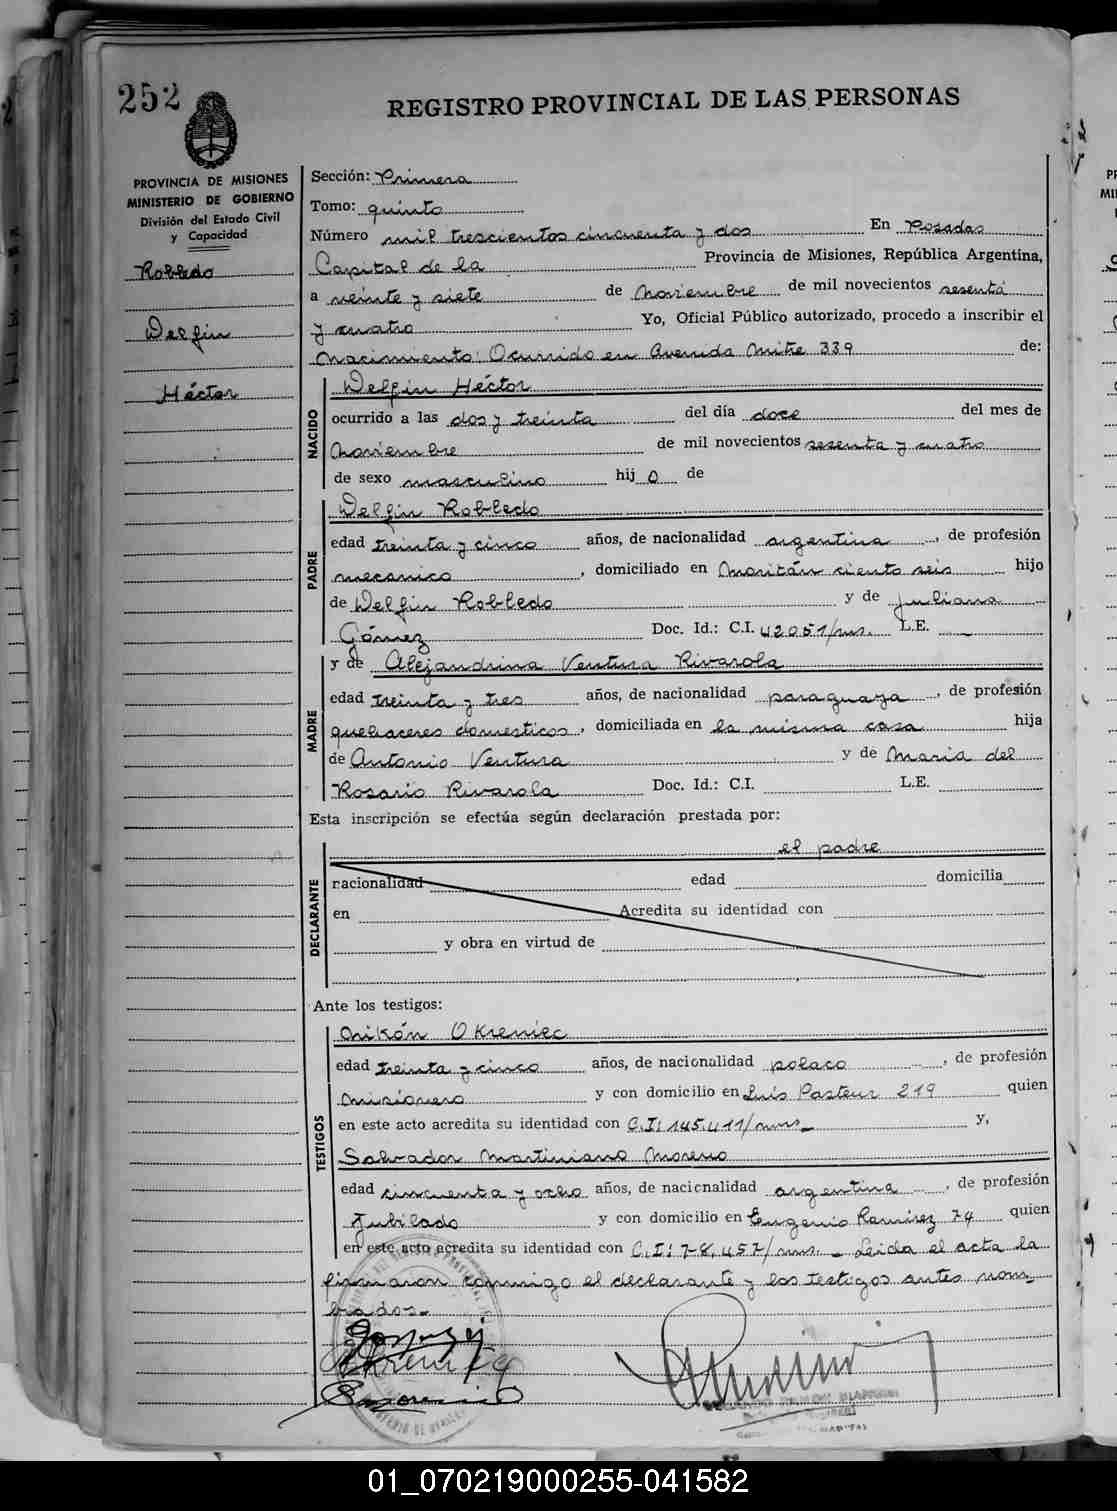 252
REGISTRO PROVINCIAL DE LAS PERSONAS
PROVINCIA DE MISIONES
MINISTERIO DE GOBIERNO
División del Estado Civil
y Capacidad
Robledo
Delfin
Héctor
Sección: Primera
Tomo: quinto
Número mil trescientos cincuenta y dos En Posadas
Capital de la Provincia de Misiones, República Argentina,
a veinte y siete de Noviembre de mil novecientos sesenta
y cuatro Yo, Oficial Público autorizado, procedo a inscribir el
Nacimiento: Ocurrido en Avenida Mitre 339 de:
NACIDO
Delfin Héctor
ocurrido a las dos y treinta del día doce del mes de
Noviembre de mil novecientos sesenta y cuatro
de sexo masculino hij o de
PADRE
Delfin Robledo
edad treinta y cinco años, de nacionalidad argentina, de profesión
mecanico, domiciliado en Moritán ciento seis hijo
de Delfin Robledo y de Juliana
Gómez Doc. Id.: C.I. 42051/ms. L.E. —
MADRE
y de Alejandrina Ventura Rivarola
edad treinta y tres años, de nacionalidad paraguaya, de profesión
quehaceres domesticos, domiciliada en la misma casa hija
de Antonio Ventura y de Maria del
Rosario Rivarola Doc. Id.: C.I. L.E.
Esta inscripción se efectúa según declaración prestada por:
DECLARANTE
el padre
nacionalidad edad domicilia
en Acredita su identidad con
y obra en virtud de
Ante los testigos:
TESTIGOS
Nikón Okreniec
edad treinta y cinco años, de nacionalidad polaco, de profesión
misionero y con domicilio en Luís Pasteur 219 quien
en este acto acredita su identidad con C.I: 145.411/mns_ y,
Salvador Martiniano Moreno
edad cincuenta y ocho años, de nacionalidad argentina, de profesión
Jubilado y con domicilio en Eugenio Ramirez 74 quien
en este acto acredita su identidad con C.I: 78,457/mns. _ Leida el acta la
firmaron conmigo el declarante y los testigos antes nom_
brados._
01_070219000255-041582